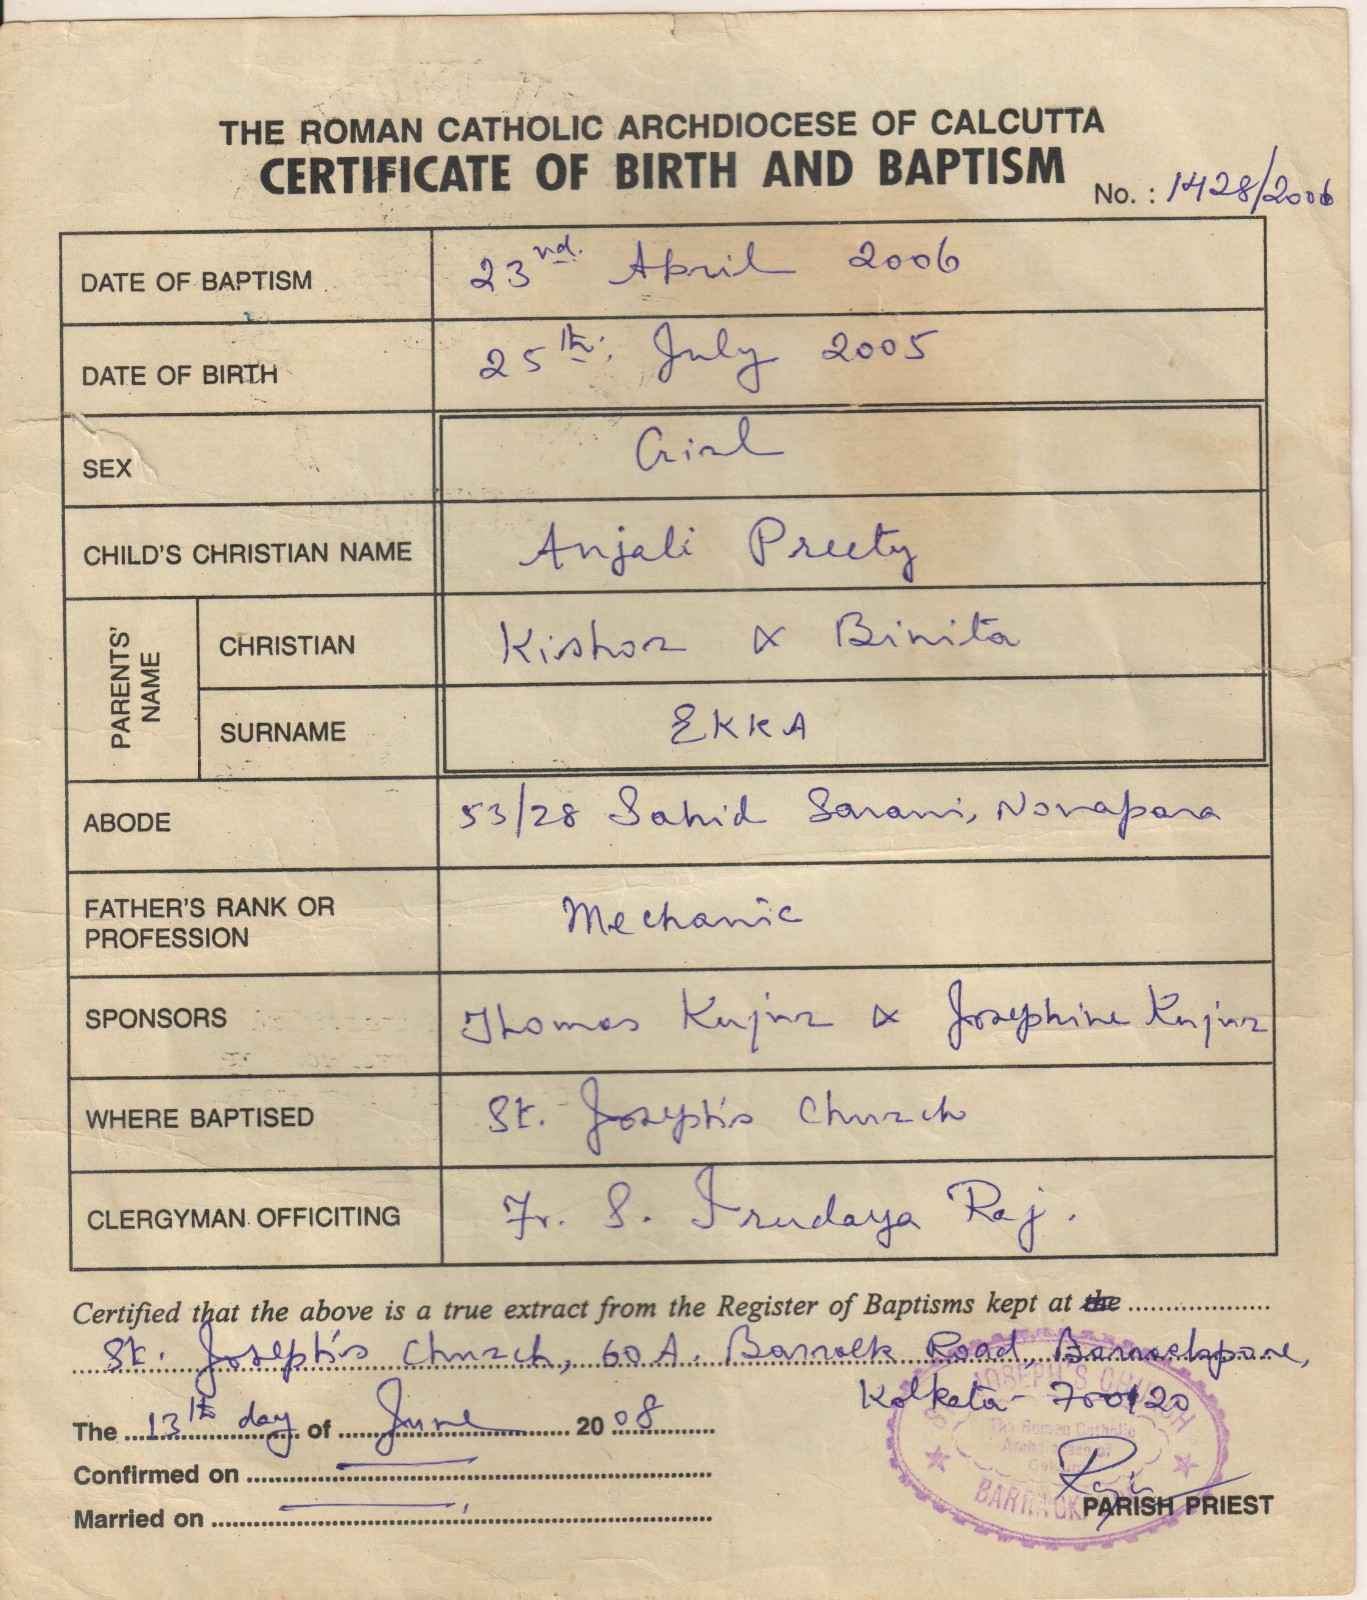 THE ROMAN CATHOLIC ARCHDIOCESE OF CALCUTTA
CERTIFICATE OF BIRTH AND BAPTISM
No. : 1428/2006
DATE OF BAPTISM 23nd. April 2006
DATE OF BIRTH 25th. July 2005
SEX Girl
CHILD'S CHRISTIAN NAME Anjali Preety
PARENTS' NAME
CHRISTIAN Kishor & Binita
SURNAME EKKA
ABODE 53/28 Sahid Sarani, Nonapara
FATHER'S RANK OR
PROFESSION
Mechanic
SPONSORS Thomas Kujur & Josephine Kujur
WHERE BAPTISED St. Joseph's Church
CLERGYMAN OFFICITING Fr. S. Irudaya Raj.
Certified that the above is a true extract from the Register of Baptisms kept at the
St. Joseph's Church, 60 A. Barrack Road, Barrackpore,
Kolkata - 700120
The 13th day of June 2008
Confirmed on
Married on
ST. JOSEPH'S CHURCH
The Roman Catholic
PARISH PRIEST